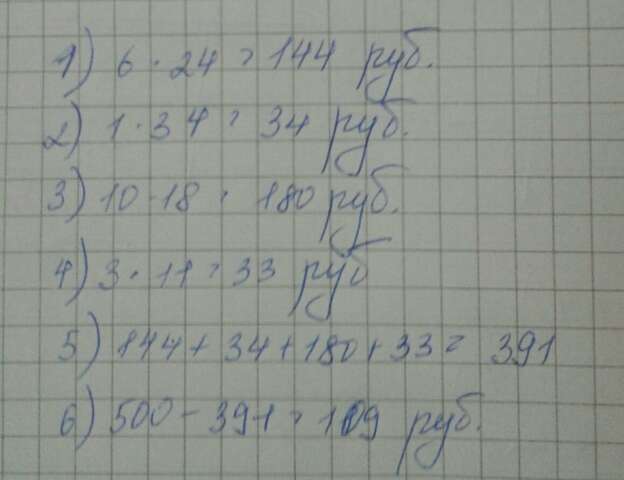 1) 6 · 24 = 144 руб.
2) 1 · 34 = 34 руб.
3) 10 · 18 = 180 руб.
4) 3 · 11 = 33 руб
5) 144 + 34 + 180 + 33 = 391
6) 500 - 391 = 109 руб.